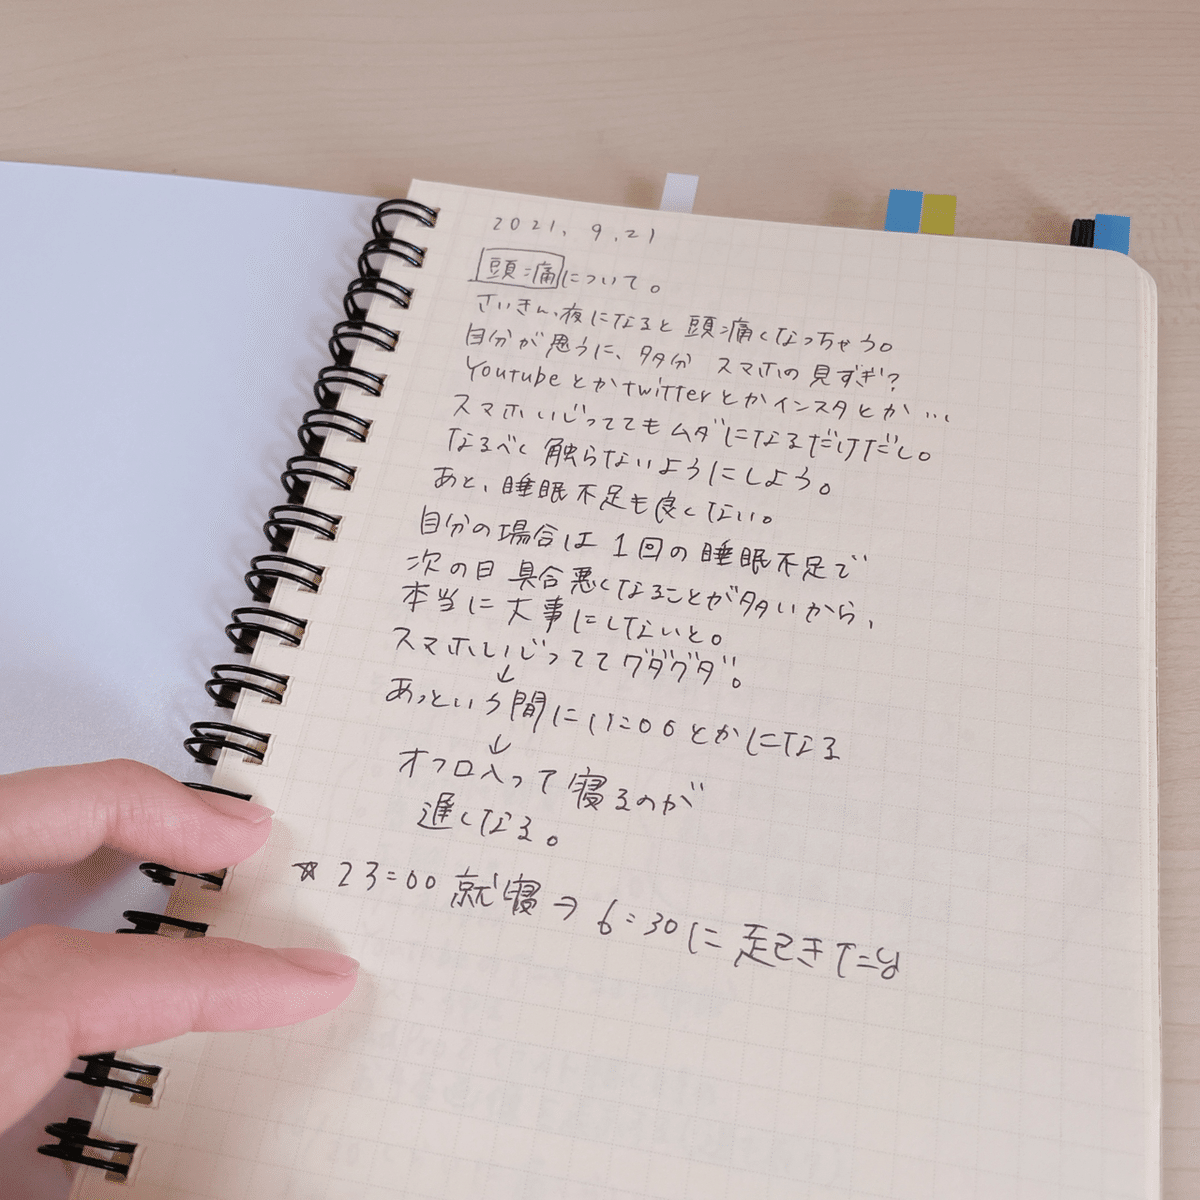 2021.9.21
頭痛について。
さいきん、夜になると頭痛くなっちゃう。
自分が思うに、多分 スマホの見すぎ?
Youtubeとかtwitterとかインスタとか…、
スマホいじっててもムダになるだけだし。
なるべく触らないようにしよう。
あと、睡眠不足も良くない。
自分の場合は1回の睡眠不足で
次の日具合悪くなることが多いから、
本当に大事にしないと。
スマホいじっててグダグダ。
↓
あっという間に11:00とかになる
↓
オフロ入って寝るのが
遅くなる。
☆23:00就寝→6:30に起きたい